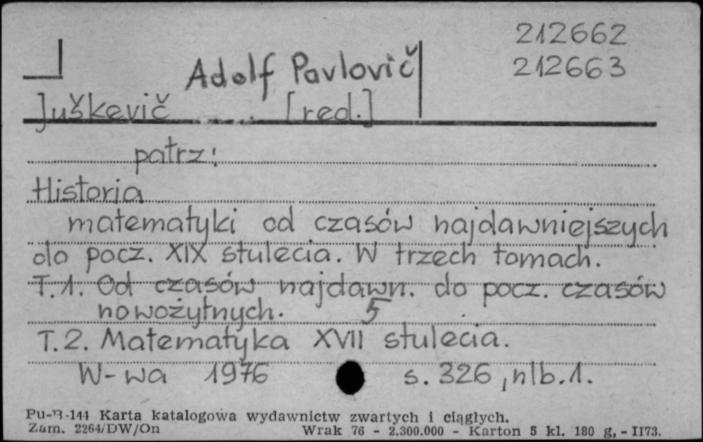 212662
Adolf Pavlovič 212663
Juškevič [red.]
patrz:
Historia
matematyki od czasów najdawniejszych
do pocz. XIX stulecia. W trzech tomach.
T.1. Od czasów najdawn. do pocz. czasów
nowożytnych. 5
T.2. Matematyka XVII stulecia.
W-wa 1976 s. 326, nlb.1.
Pu-B-144 Karta katalogowa wydawnictw zwartych i ciągłych.
Zam. 2264/DW/On Wrak 76 - 2.300.000 - Karton 5 kl. 180 g. - II73.